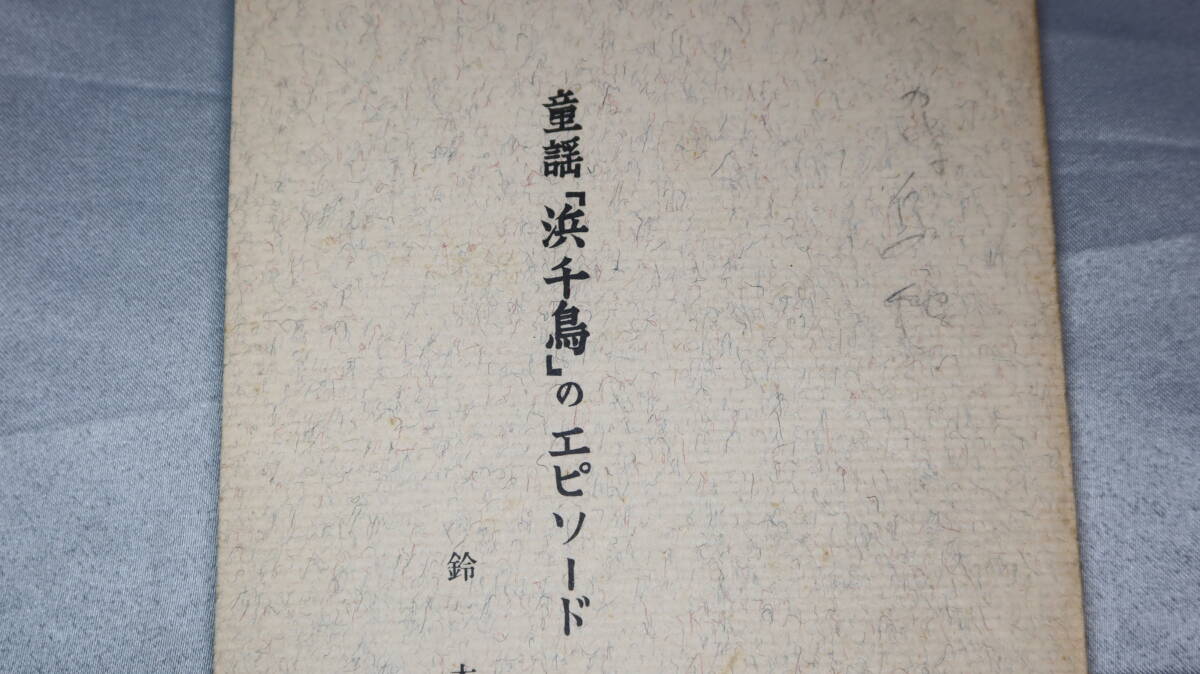 童謡『浜千鳥』のエピソード
鈴